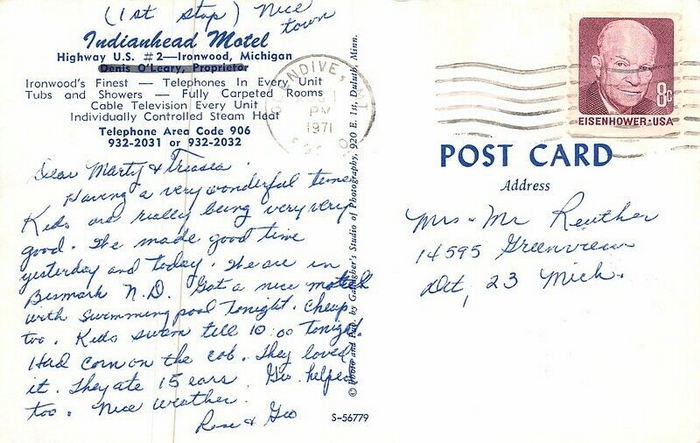 (1st stop) Nice
town
Indianhead Motel
Highway U.S. #2—Ironwood, Michigan
Denis O'Leary, Proprietor
Ironwood's Finest — Telephones In Every Unit
Tubs and Showers — Fully Carpeted Rooms
Cable Television Every Unit
Individually Controlled Steam Heat
Telephone Area Code 906
932-2031 or 932-2032
Dear Marty & Treasea
Having a very wonderful time
Kids are really being very very
good. We made good time
yesterday and today. We are in
Bismark N.D. Got a nice motel
with swimming pool tonight. Cheap
too. Kids swam till 10:00 tonight
Had corn on the cob. They loved
it. They ate 15 ears. Geo. helped
too. Nice weather.
Rose & Geo
S-56779
by Gallagher's Studio of Photography, 920 E. 1st, Duluth, Minn.
GLENDIVE, MT
PM
1971
8c
EISENHOWER·USA
POST CARD
Address
Mrs - Mr Reuther
14595 Greenview
Det, 23 Mich.